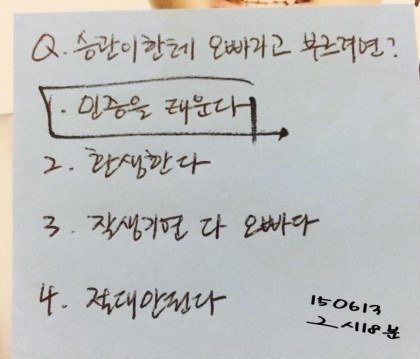 Q. 승관이한테 오빠라고 부르려면?
1. 민증을 태운다
2. 환생한다
3. 잘생기면 다 오빠다
4. 절대안된다
150613
2시18분